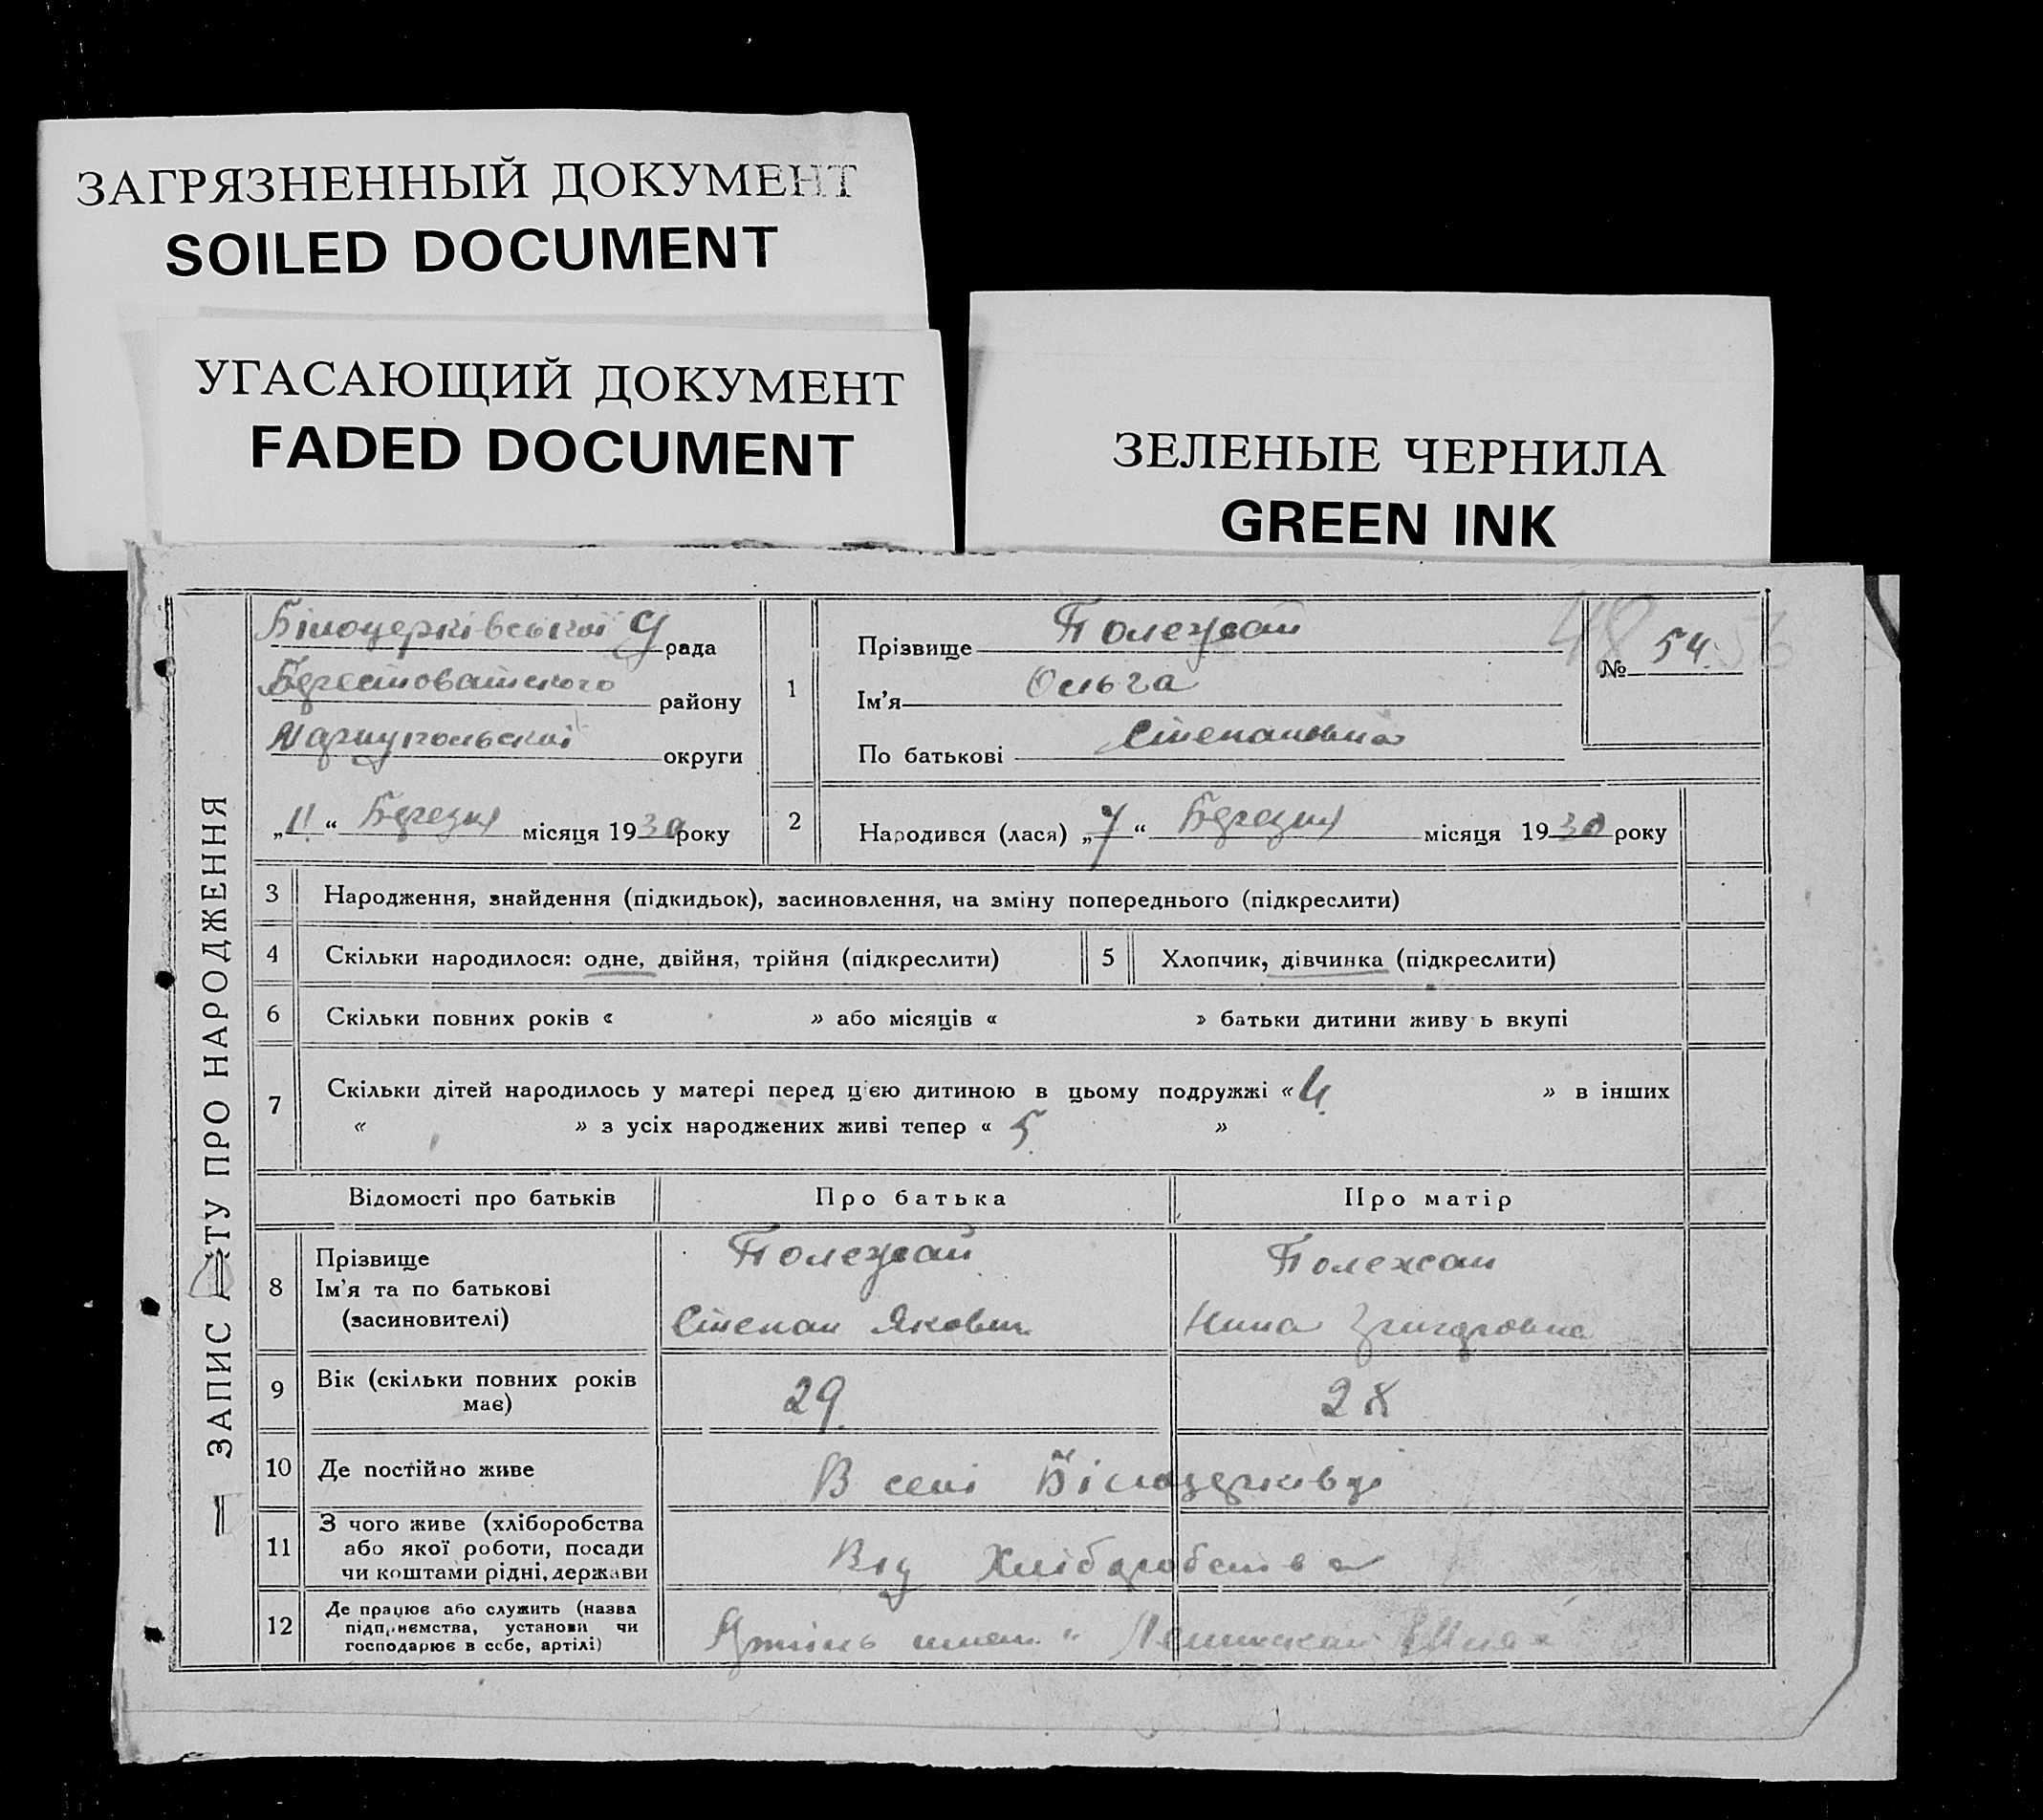 ЗАГРЯЗНЕННЫЙ ДОКУМЕНТ
SOILED DOCUMENT
УГАСАЮЩИЙ ДОКУМЕНТ
FADED DOCUMENT
ЗЕЛЕНЫЕ ЧЕРНИЛА
GREEN INK
ЗАПИС АКТУ ПРО НАРОДЖЕННЯ
Білоцерківської С рада
району
Маріупольскої округи
„11“ Березня місяця 1930 року
1
Прізвище Полежай
Ім’я Ольга
По батькові Степановна
№ 54.
48
56
2
Народився (лася) „7“ Березня місяця 1930 року
3 Народження, знайдення (підкидьок), засиновлення, на зміну попереднього (підкреслити)
4 Скільки народилося: одне, двійня, трійня (підкреслити) 5 Хлопчик, дівчинка (підкреслити)
6 Скільки повних років « » або місяців « » батьки дитини живу ь вкупі
7 Скільки дітей народилось у матері перед цією дитиною в цьому подружжі «4 » в інших
« » з усіх народжених живі тепер « 5 »
Відомості про батьків Про батька Про матір
8 Прізвище
Ім’я та по батькові
(засиновителі)
Полежай
Степан Якович
Полежай
Нина Григоровна
9 Вік (скільки повних років
має)
29. 28
10 Де постійно живе В селі Білоцерківці
11 З чого живе (хліборобства
або якої роботи, посади
чи коштами рідні, держави
Від Хліборобства
12 Де працює або служить (назва
підприємства, установи чи
господарює в себе, артілі)